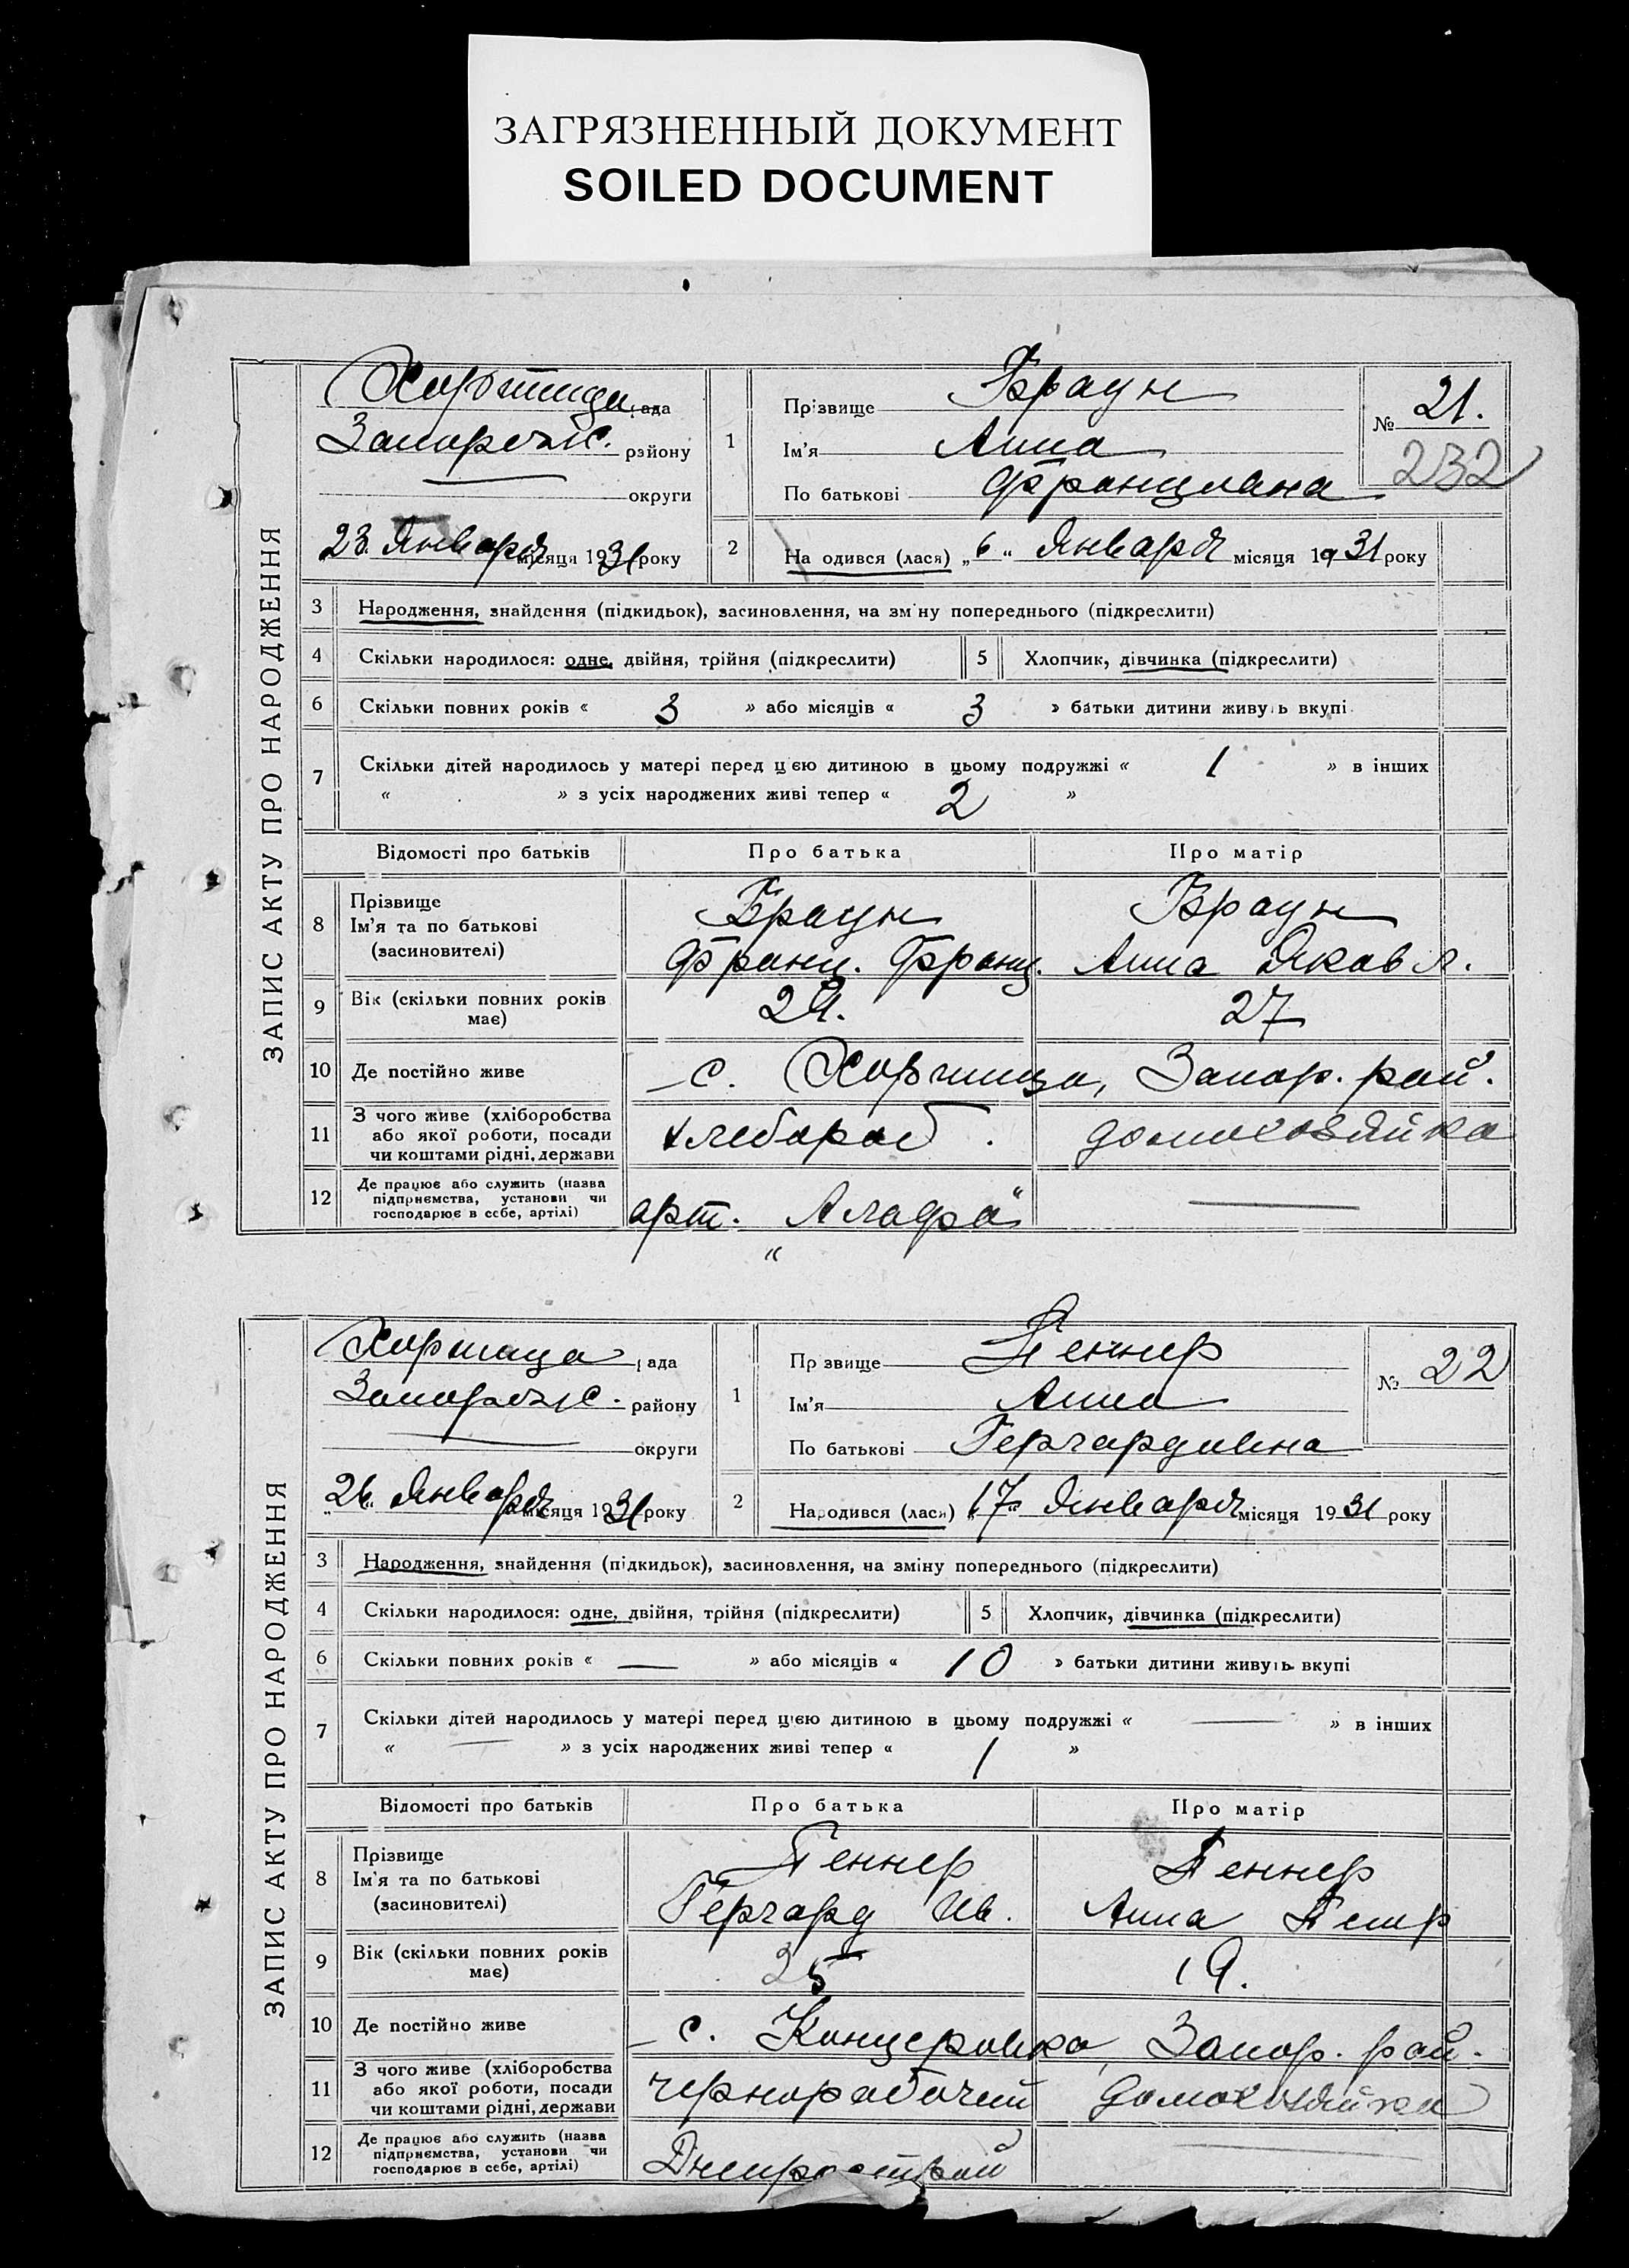 ЗАГРЯЗНЕННЫЙ ДОКУМЕНТ
SOILED DOCUMENT
ЗАПИС АКТУ ПРО НАРОДЖЕННЯ
Хортица рада
Запорожс. району
округи
23 Января місяця 1931 року
1
Прізвище Браун
Ім'я Анна
По батькові Францовна
№ 21.
232
2
На одився (лася) „6“ Января місяця 1931 року
3 Народження, знайдення (підкидьок), засиновлення, на зміну попереднього (підкреслити)
4 Скільки народилося: одне, двійня, трійня (підкреслити) 5 Хлопчик, дівчинка (підкреслити)
6 Скільки повних років « 3 » або місяців « 3 » батьки дитини живуть вкупі
7 Скільки дітей народилось у матері перед цією дитиною в цьому подружжі « 1 » в інших
« » з усіх народжених живі тепер « 2 »
Відомості про батьків Про батька Про матір
8 Прізвище
Ім'я та по батькові
(засиновителі)
Браун Браун
Франц. Франц. Анна Яковл.
9 Вік (скільки повних років
має)
29. 27
10 Де постійно живе с. Хортица, Запор. рай.
11 З чого живе (хліборобства
або якої роботи, посади
чи коштами рідні, держави
хлебороб. домохозяйка
12 Де працює або служить (назва
підприємства, установи чи
господарює в себе, артілі)
арт. „
ЗАПИС АКТУ ПРО НАРОДЖЕННЯ
Хортица рада
Запорожс. району
округи
26 Января місяця 1931 року
1
Пр звище Пеннер
Ім'я Анна
По батькові Гергардовна
№ 22
2
Народився (лася) „17“ Января місяця 1931 року
3 Народження, знайдення (підкидьок), засиновлення, на зміну попереднього (підкреслити)
4 Скільки народилося: одне, двійня, трійня (підкреслити) 5 Хлопчик, дівчинка (підкреслити)
6 Скільки повних років « — » або місяців « 10 » батьки дитини живуть вкупі
7 Скільки дітей народилось у матері перед цією дитиною в цьому подружжі « — » в інших
« — » з усіх народжених живі тепер « 1 »
Відомості про батьків Про батька Про матір
8 Прізвище
Ім'я та по батькові
(засиновителі)
Пеннер Пеннер
Гергард Ив. Анна Петр
9 Вік (скільки повних років
має)
25 19.
10 Де постійно живе с. Канцеровка, Запор. рай.
11 З чого живе (хліборобства
або якої роботи, посади
чи коштами рідні, держави
чернорабочий домохозяйка
12 Де працює або служить (назва
підприємства, установи чи
господарює в себе, артілі)
Днепрострой